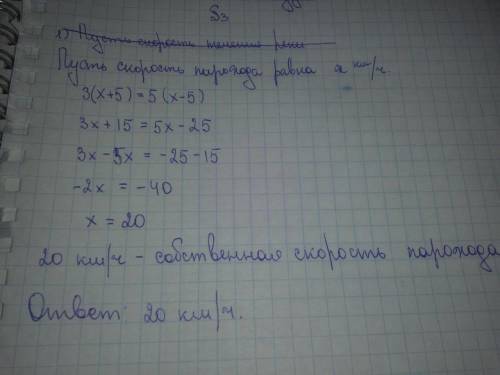 S3
1) Пусть скорость течения реки
Пусть скорость парохода равна x км/ч.
3(x+5) = 5(x-5)
3x + 15 = 5x - 25
3x - 5x = -25 - 15
-2x = -40
x = 20
20 км/ч - собственная скорость парохода
Ответ: 20 км/ч.